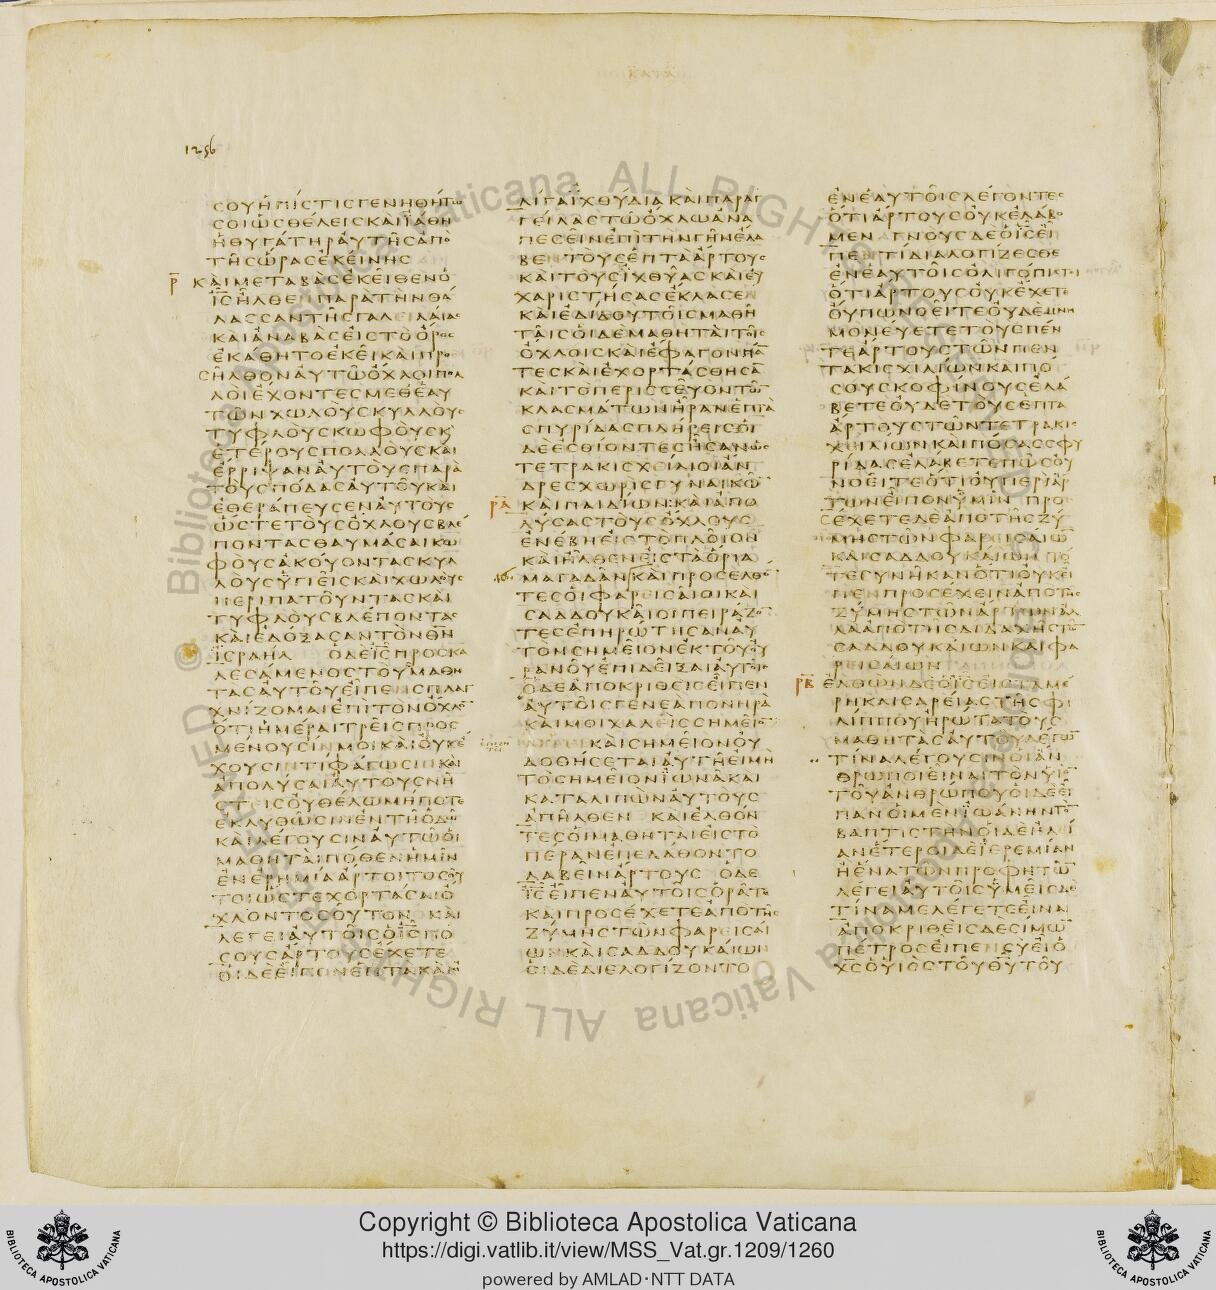 1256
ΣΟΥΗΠΙΣΤΙΣΓΕΝΗΘΗΤΩ
ΣΟΙΩΣΘΕΛΕΙΣΚΑΙΪΑΘΗ
ΗΘΥΓΑΤΗΡΑΥΤΗΣΑΠΟ
ΤΗΣΩΡΑΣΕΚΕΙΝΗΣ
Ρ ΚΑΙΜΕΤΑΒΑΣΕΚΕΙΘΕΝΟ
ΙΣΗΛΘΕΝΠΑΡΑΤΗΝΘΑ
ΛΑΣΣΑΝΤΗΣΓΑΛΕΙΛΑΙΑΣ
ΚΑΙΑΝΑΒΑΣΕΙΣΤΟΟΡΟΣ
ΕΚΑΘΗΤΟΕΚΕΙΚΑΙΠΡΟ
ΣΗΛΘΟΝΑΥΤΩΟΧΛΟΙΠΟΛ
ΛΟΙΕΧΟΝΤΕΣΜΕΘΕΑΥ
ΤΩΝΧΩΛΟΥΣΚΥΛΛΟΥΣ
ΤΥΦΛΟΥΣΚΩΦΟΥΣΚ
ΕΤΕΡΟΥΣΠΟΛΛΟΥΣΚΑΙ
ΕΡΡΙΨΑΝΑΥΤΟΥΣΠΑΡΑ
ΤΟΥΣΠΟΔΑΣΑΥΤΟΥΚΑΙ
ΕΘΕΡΑΠΕΥΣΕΝΑΥΤΟΥΣ
ΩΣΤΕΤΟΥΣΟΧΛΟΥΣΒΛΕ
ΠΟΝΤΑΣΘΑΥΜΑΣΑΙΚΩ
ΦΟΥΣΑΚΟΥΟΝΤΑΣΚΥΛ
ΛΟΥΣΥΓΙΕΙΣΚΑΙΧΩΛΟΥΣ
ΠΕΡΙΠΑΤΟΥΝΤΑΣΚΑΙ
ΤΥΦΛΟΥΣΒΛΕΠΟΝΤΑΣ
ΚΑΙΕΔΟΞΑΣΑΝΤΟΝΘΝ
ΙΣΡΑΗΛ ΟΔΕΙΣΠΡΟΣΚΑ
ΛΕΣΑΜΕΝΟΣΤΟΥΣΜΑΘΗ
ΤΑΣΑΥΤΟΥΕΙΠΕΝΣΠΛΑΓ
ΧΝΙΖΟΜΑΙΕΠΙΤΟΝΟΧΛΟΝ
ΟΤΙΗΜΕΡΑΙΤΡΕΙΣΠΡΟΣ
ΜΕΝΟΥΣΙΝΜΟΙΚΑΙΟΥΚΕ
ΧΟΥΣΙΝΤΙΦΑΓΩΣΙΝΚΑΙ
ΑΠΟΛΥΣΑΙΑΥΤΟΥΣΝΗ
ΣΤΕΙΣΟΥΘΕΛΩΜΗΠΟΤΕ
ΕΚΛΥΘΩΣΙΝΕΝΤΗΟΔΩ
ΚΑΙΛΕΓΟΥΣΙΝΑΥΤΩΟΙ
ΜΑΘΗΤΑΙΠΟΘΕΝΗΜΙΝ
ΕΝΕΡΗΜΙΑΑΡΤΟΙΤΟΣΟΥ
ΤΟΙΩΣΤΕΧΟΡΤΑΣΑΙΟ
ΧΛΟΝΤΟΣΟΥΤΟΝ ΚΑΙ
ΛΕΓΕΙΑΥΤΟΙΣΟΙΣΠΟ
ΣΟΥΣΑΡΤΟΥΣΕΧΕΤΕ
ΟΙΔΕΕΙΠΟΝΕΠΤΑΚΑΙΟ
ΛΙΓΑΙΧΘΥΔΙΑΚΑΙΠΑΡΑΓ
ΓΕΙΛΑΣΤΩΟΧΛΩΑΝΑ
ΠΕΣΕΙΝΕΠΙΤΗΝΓΗΝΕΛΑ
ΒΕΤΟΥΣΕΠΤΑΑΡΤΟΥΣ
ΚΑΙΤΟΥΣΙΧΘΥΑΣΚΑΙΕΥ
ΧΑΡΙΣΤΗΣΑΣΕΚΛΑΣΕΝ
ΚΑΙΕΔΙΔΟΥΤΟΙΣΜΑΘΗ
ΤΑΙΣΟΙΔΕΜΑΘΗΤΑΙΤΟΙΣ
ΟΧΛΟΙΣΚΑΙΕΦΑΓΟΝΠΑ
ΤΕΣΚΑΙΕΧΟΡΤΑΣΘΗΣΑ
ΚΑΙΤΟΠΕΡΙΣΣΕΥΟΝΤΩ
ΚΛΑΣΜΑΤΩΝΗΡΑΝΕΠΤΑ
ΣΠΥΡΙΔΑΣΠΛΗΡΕΙΣΟΙ
ΔΕΕΣΘΙΟΝΤΕΣΗΣΑΝΩΣ
ΤΕΤΡΑΚΙΣΧΕΙΛΙΟΙΑΝ
ΔΡΕΣΧΩΡΙΣΓΥΝΑΙΚΩ
ΡΑ ΚΑΙΠΑΙΔΙΩΝ:ΚΑΙΑΠΟ
ΛΥΣΑΣΤΟΥΣΟΧΛΟΥΣ
ΕΝΕΒΗΕΙΣΤΟΠΛΟΙΟΝ
ΚΑΙΗΛΘΕΝΕΙΣΤΑΟΡΙΑ
ΜΑΓΑΔΑΝΚΑΙΠΡΟΣΕΛΘΟ
ΤΕΣΟΙΦΑΡΕΙΣΑΙΟΙΚΑΙ
ΣΑΔΔΟΥΚΑΙΟΙΠΕΙΡΑΖΟ
ΤΕΣΕΠΗΡΩΤΗΣΑΝΑΥ
ΤΟΝΣΗΜΕΙΟΝΕΚΤΟΥΟΥ
ΡΑΝΟΥΕΠΙΔΕΙΞΑΙΑΥΤΟΙΣ
ΟΔΕΑΠΟΚΡΙΘΕΙΣΕΙΠΕΝ
ΑΥΤΟΙΣΓΕΝΕΑΠΟΝΗΡΑ
ΚΑΙΜΟΙΧΑΛΕΙΣΣΗΜΕΙΟΝ
ΚΑΙΣΗΜΕΙΟΝΟΥ
ΔΟΘΗΣΕΤΑΙΑΥΤΗΕΙΜΗ
ΤΟΣΗΜΕΙΟΝΙΩΝΑΚΑΙ
ΚΑΤΑΛΙΠΩΝΑΥΤΟΥΣ
ΑΠΗΛΘΕΝ ΚΑΙΕΛΘΟΝ
ΤΕΣΟΙΜΑΘΗΤΑΙΕΙΣΤΟ
ΠΕΡΑΝΕΠΕΛΑΘΟΝΤΟ
ΛΑΒΕΙΝΑΡΤΟΥΣ ΟΔΕ
ΙΣΕΙΠΕΝΑΥΤΟΙΣΟΡΑΤΕ
ΚΑΙΠΡΟΣΕΧΕΤΕΑΠΟΤΗΣ
ΖΥΜΗΣΤΩΝΦΑΡΕΙΣΑΙ
ΩΝΚΑΙΣΑΔΔΟΥΚΑΙΩΝ
ΟΙΔΕΔΙΕΛΟΓΙΖΟΝΤΟ
ΕΝΕΑΥΤΟΙΣΛΕΓΟΝΤΕΣ
ΟΤΙΑΡΤΟΥΣΟΥΚΕΛΑΒΟ
ΜΕΝ ΓΝΟΥΣΔΕΟΙΣΕΙ
ΠΕΝΤΙΔΙΑΛΟΓΙΖΕΣΘΕ
ΕΝΕΑΥΤΟΙΣΟΛΙΓΟΠΙΣΤΟΙ
ΟΤΙΑΡΤΟΥΣΟΥΚΕΧΕΤΕ
ΟΥΠΩΝΟΕΙΤΕΟΥΔΕΜΝΗ
ΜΟΝΕΥΕΤΕΤΟΥΣΠΕΝ
ΤΕΑΡΤΟΥΣΤΩΝΠΕΝ
ΤΑΚΙΣΧΙΛΙΩΝΚΑΙΠΟ
ΣΟΥΣΚΟΦΙΝΟΥΣΕΛΑ
ΒΕΤΕΟΥΔΕΤΟΥΣΕΠΤΑ
ΑΡΤΟΥΣΤΩΝΤΕΤΡΑΚΙΣ
ΧΕΙΛΙΩΝΚΑΙΠΟΣΑΣΣΦΥ
ΡΙΔΑΣΕΛΑΒΕΤΕΠΩΣΟΥ
ΝΟΕΙΤΕΟΤΙΟΥΠΕΡΙΑΡ
ΤΩΝΕΙΠΟΝΥΜΙΝ ΠΡΟ
ΣΕΧΕΤΕΔΕΑΠΟΤΗΣΖΥ
ΜΗΣΤΩΝΦΑΡΕΙΣΑΙΩ
ΚΑΙΣΑΔΔΟΥΚΑΙΩΝΤΟ
ΤΕΣΥΝΗΚΑΝΟΤΙΟΥΚΕΙ
ΠΕΝΠΡΟΣΕΧΕΙΝΑΠΟΤΗΣ
ΖΥΜΗΣΤΩΝΑΡΤΩΝΑΛ
ΛΑΑΠΟΤΗΣΔΙΔΑΧΗΣΤΩ
ΣΑΔΔΟΥΚΑΙΩΝΚΑΙΦΑ
ΡΕΙΣΑΙΩΝ
ΡΒ ΕΛΘΩΝΔΕΟΙΣΕΙΣΤΑΜΕ
ΡΗΚΑΙΣΑΡΕΙΑΣΤΗΣΦΙ
ΛΙΠΠΟΥΗΡΩΤΑΤΟΥΣ
ΜΑΘΗΤΑΣΑΥΤΟΥΛΕΓΩ
ΤΙΝΑΛΕΓΟΥΣΙΝΟΙΑΝ
ΘΡΩΠΟΙΕΙΝΑΙΤΟΝΥΙΟ
ΤΟΥΑΝΘΡΩΠΟΥΟΙΔΕΕΙ
ΠΑΝΟΙΜΕΝΙΩΑΝΗΝΤΟ
ΒΑΠΤΙΣΤΗΝΟΙΔΕΗΛΕΙ
ΑΝΕΤΕΡΟΙΔΕΙΕΡΕΜΙΑΝ
ΗΕΝΑΤΩΝΠΡΟΦΗΤΩ
ΛΕΓΕΙΑΥΤΟΙΣΥΜΕΙΣΔΕ
ΤΙΝΑΜΕΛΕΓΕΤΕΕΙΝΑΙ
ΑΠΟΚΡΙΘΕΙΣΔΕΣΙΜΩ
ΠΕΤΡΟΣΕΙΠΕΝΣΥΕΙΟ
ΧΣΟΥΙΟΣΤΟΥΘΥΤΟΥ
Copyright © Biblioteca Apostolica Vaticana
https://digi.vatlib.it/view/MSS_Vat.gr.1209/1260
powered by AMLAD·NTT DATA
BIBLIOTECA APOSTOLICA VATICANA
BIBLIOTECA APOSTOLICA VATICANA